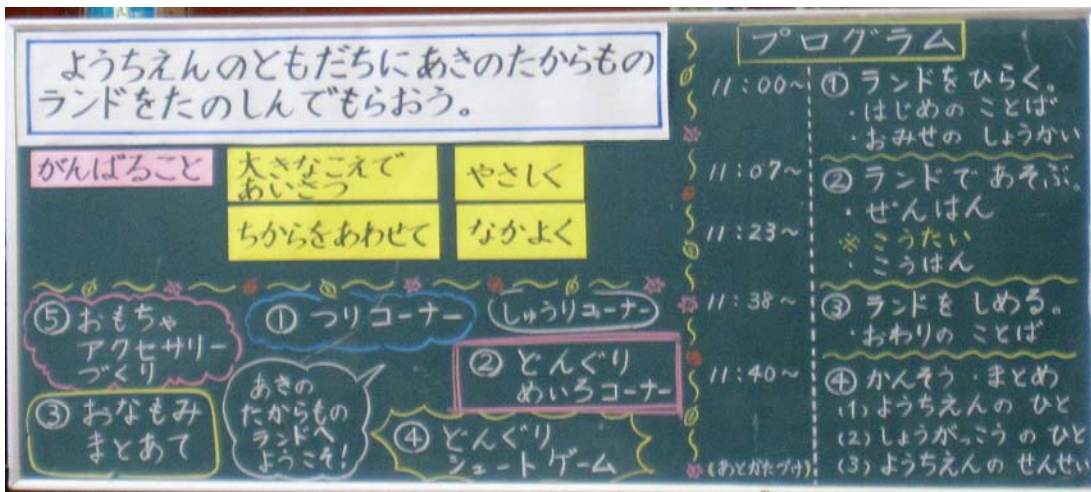 ようちえんのともだちにあきのたからもの
ランドをたのしんでもらおう。
がんばること
大きなこえで
あいさつ
やさしく
ちからをあわせて
なかよく
⑤おもちゃ
アクセサリー
づくり
①つりコーナー
しゅうりコーナー
②どんぐり
めいろコーナー
③おなもみ
まとあて
あきの
たからもの
ランドへ
ようこそ!
④どんぐり
シュートゲーム
プログラム
11:00~ ①ランドをひらく。
・はじめのことば
・おみせのしょうかい
11:07~ ②ランドであそぶ。
・ぜんはん
11:23~ ※こうたい
・こうはん
11:38~ ③ランドをしめる。
・おわりのことば
11:40~ ④かんそう・まとめ
(1)ようちえんのひと
(2)しょうがっこうのひと
(あとかたづけ) (3)ようちえんのせんせい